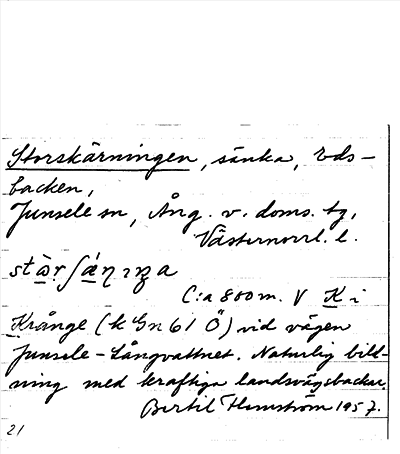 Storskärningen, sänka, Eds-
backen,
Junsele sn, Ång. v. doms. tg,
Västernorrl. l.
C:a 800 m. V K i
Krånge (k Gn 61 Ö) vid vägen
Junsele-Långvattnet. Naturlig bild-
ning med kraftiga landsvägsbackar.
Bertil Flemström 1957.
21